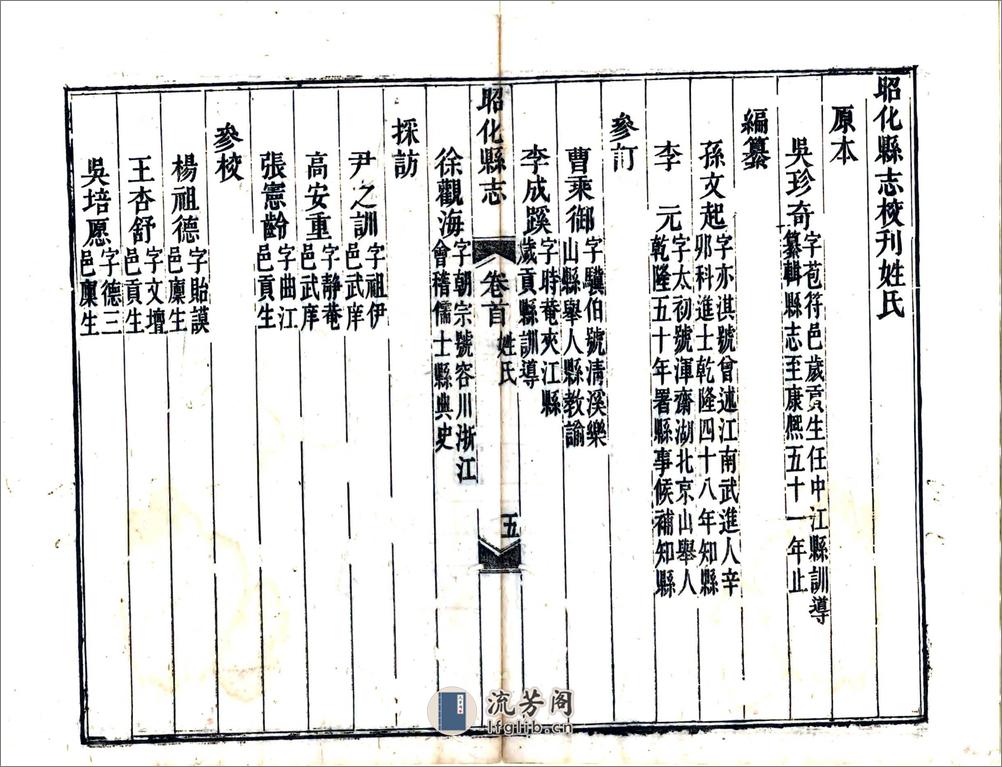 昭化縣志校刊姓氏
原本
吳珍奇 字苞符邑歲貢生任中江縣訓導
纂輯縣志至康熙五十一年止
編纂
孫文起 字亦淇號曾述江南武進人辛
夘科進士乾隆四十八年知縣
李元 字太初號渾齋湖北京山舉人
乾隆五十年署縣事候補知縣
參訂
曹乘御 字驥伯號淸溪樂
山縣舉人縣教諭
李成蹊 字時菴夾江縣
歲貢縣訓導
昭化縣志 卷首 姓氏 五
徐觀海 字朝宗號容川浙江
會稽儒士縣典史
採訪
尹之訓 字祖伊
邑武庠
高安重 字靜菴
邑武庠
張憲齡 字曲江
邑貢生
參校
楊祖德 字貽謨
邑廩生
王杏舒 字文壇
邑貢生
吳培愿 字德三
邑廩生
流芳阁
lfglib.cn